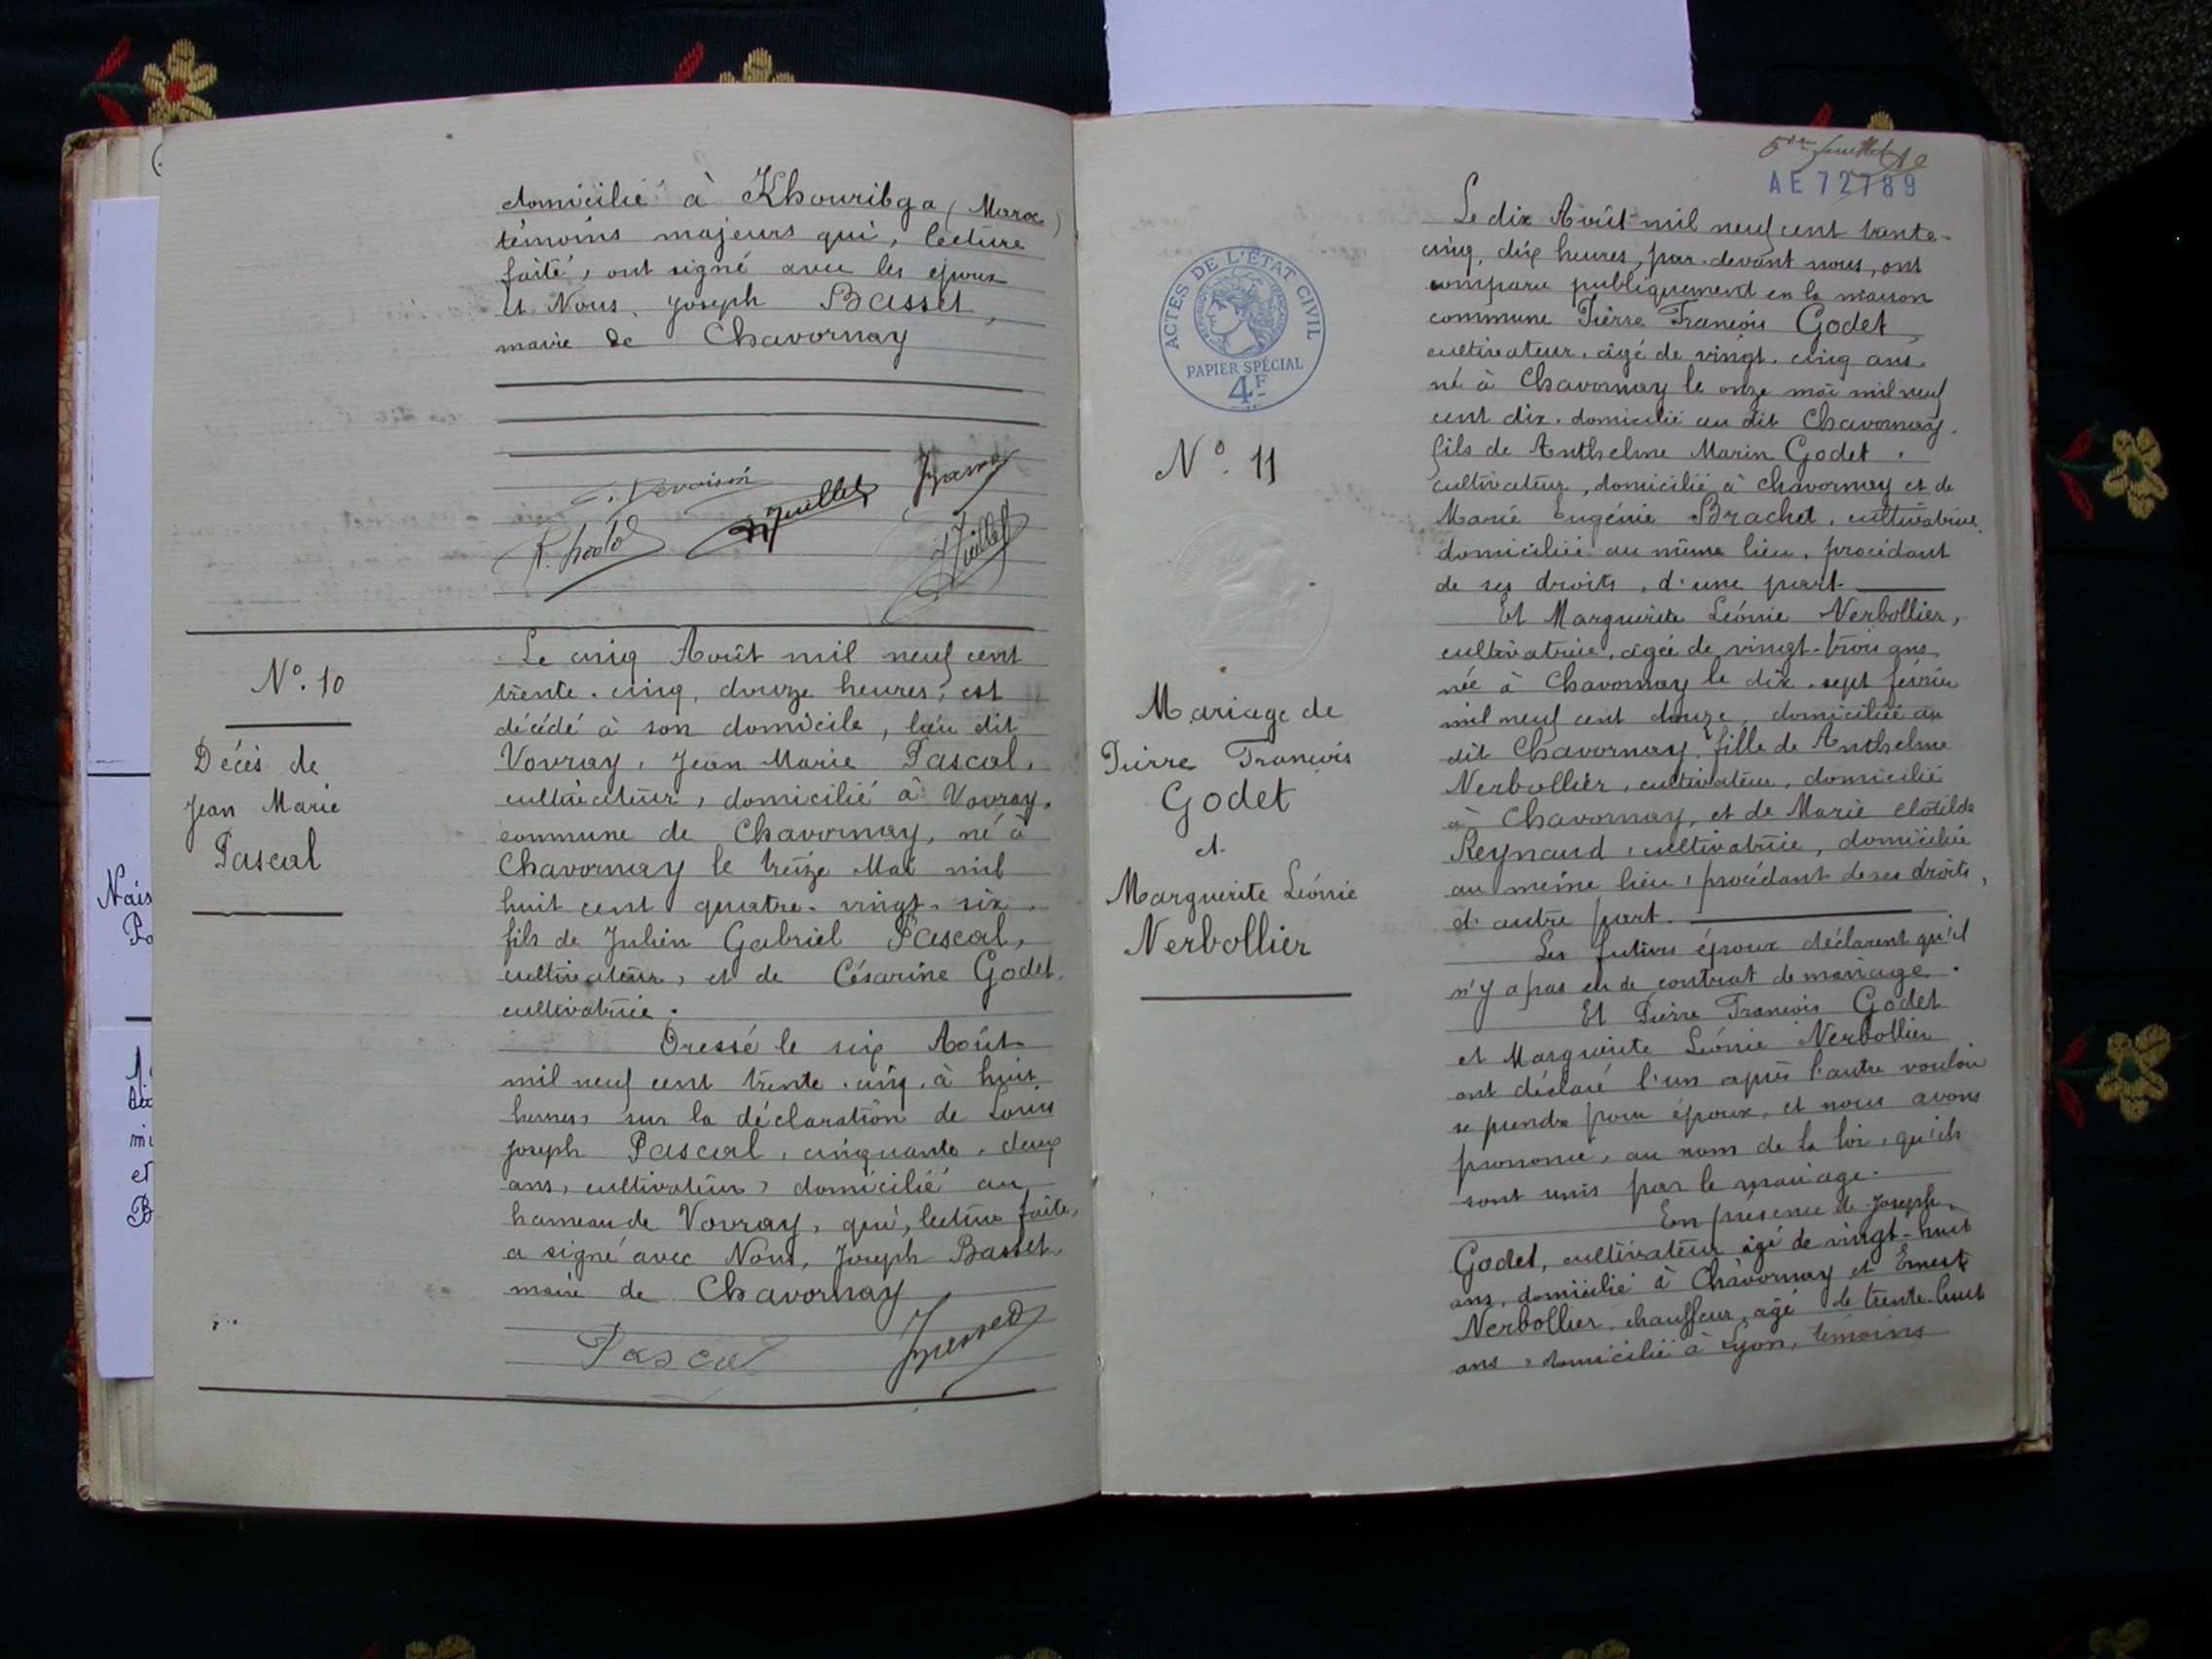 domicilié à Khouribga (Maroc)
témoins majeurs qui, lecture
faite, ont signé avec les époux
et Nous, Joseph Basset,
maire de Chavornay
Juillet
N°. 10
Décès de
Jean Marie
Pascal
Le cinq Août mil neuf cent
trente-cinq, douze heures, est
décédé à son domicile, lieu dit
Vovray, Jean Marie Pascal,
cultivateur, domicilié à Vovray,
commune de Chavornay, né à
Chavornay le treize Mai mil
huit cent quatre-vingt-six,
fils de Julien Gabriel Pascal,
cultivateur, et de Césarine Godet,
cultivatrice.
Dressé le six Août
mil neuf cent trente-cinq, à huit
heures sur la déclaration de Louis
Joseph Pascal, cinquante-deux
ans, cultivateur, domicilié au
hameau de Vovray, qui, lecture faite,
a signé avec Nous, Joseph Basset
maire de Chavornay
Pascal
Basset
Nais
Po
mi
et
B
5ème feuillet
AE 72789
ACTES DE L'ÉTAT CIVIL
PAPIER SPÉCIAL
4F
N°. 11
Mariage de
Pierre François
Godet
et
Marguerite Léonie
Nerbollier
Le dix Août mil neuf cent trente-
cinq, dix heures, par-devant nous, ont
comparu publiquement en la maison
commune Pierre François Godet,
cultivateur, âgé de vingt-cinq ans
né à Chavornay le onze mai mil neuf
cent dix, domicilié au dit Chavornay,
fils de Anthelme Marin Godet,
cultivateur, domicilié à Chavornay et de
Marie Eugénie Brachet, cultivatrice,
domiciliée au même lieu, procédant
de ses droits, d'une part
Et Marguerite Léonie Nerbollier,
cultivatrice, âgée de vingt-trois ans,
née à Chavornay le dix-sept février
mil neuf cent douze, domiciliée au
dit Chavornay, fille de Anthelme
Nerbollier, cultivateur, domicilié
à Chavornay, et de Marie Clotilde
Reynaud, cultivatrice, domiciliée
au même lieu, procédant de ses droits,
d'autre part.
Les futurs époux déclarent qu'il
n'y a pas eu de contrat de mariage.
Et Pierre François Godet
et Marguerite Léonie Nerbollier
ont déclaré l'un après l'autre vouloir
se prendre pour époux, et nous avons
prononcé, au nom de la loi, qu'ils
sont unis par le mariage.
En présence de Joseph
Godet, cultivateur âgé de vingt-huit
ans, domicilié à Chavornay et Ernest
Nerbollier, chauffeur, âgé de trente-huit
ans, domicilié à Lyon, témoins